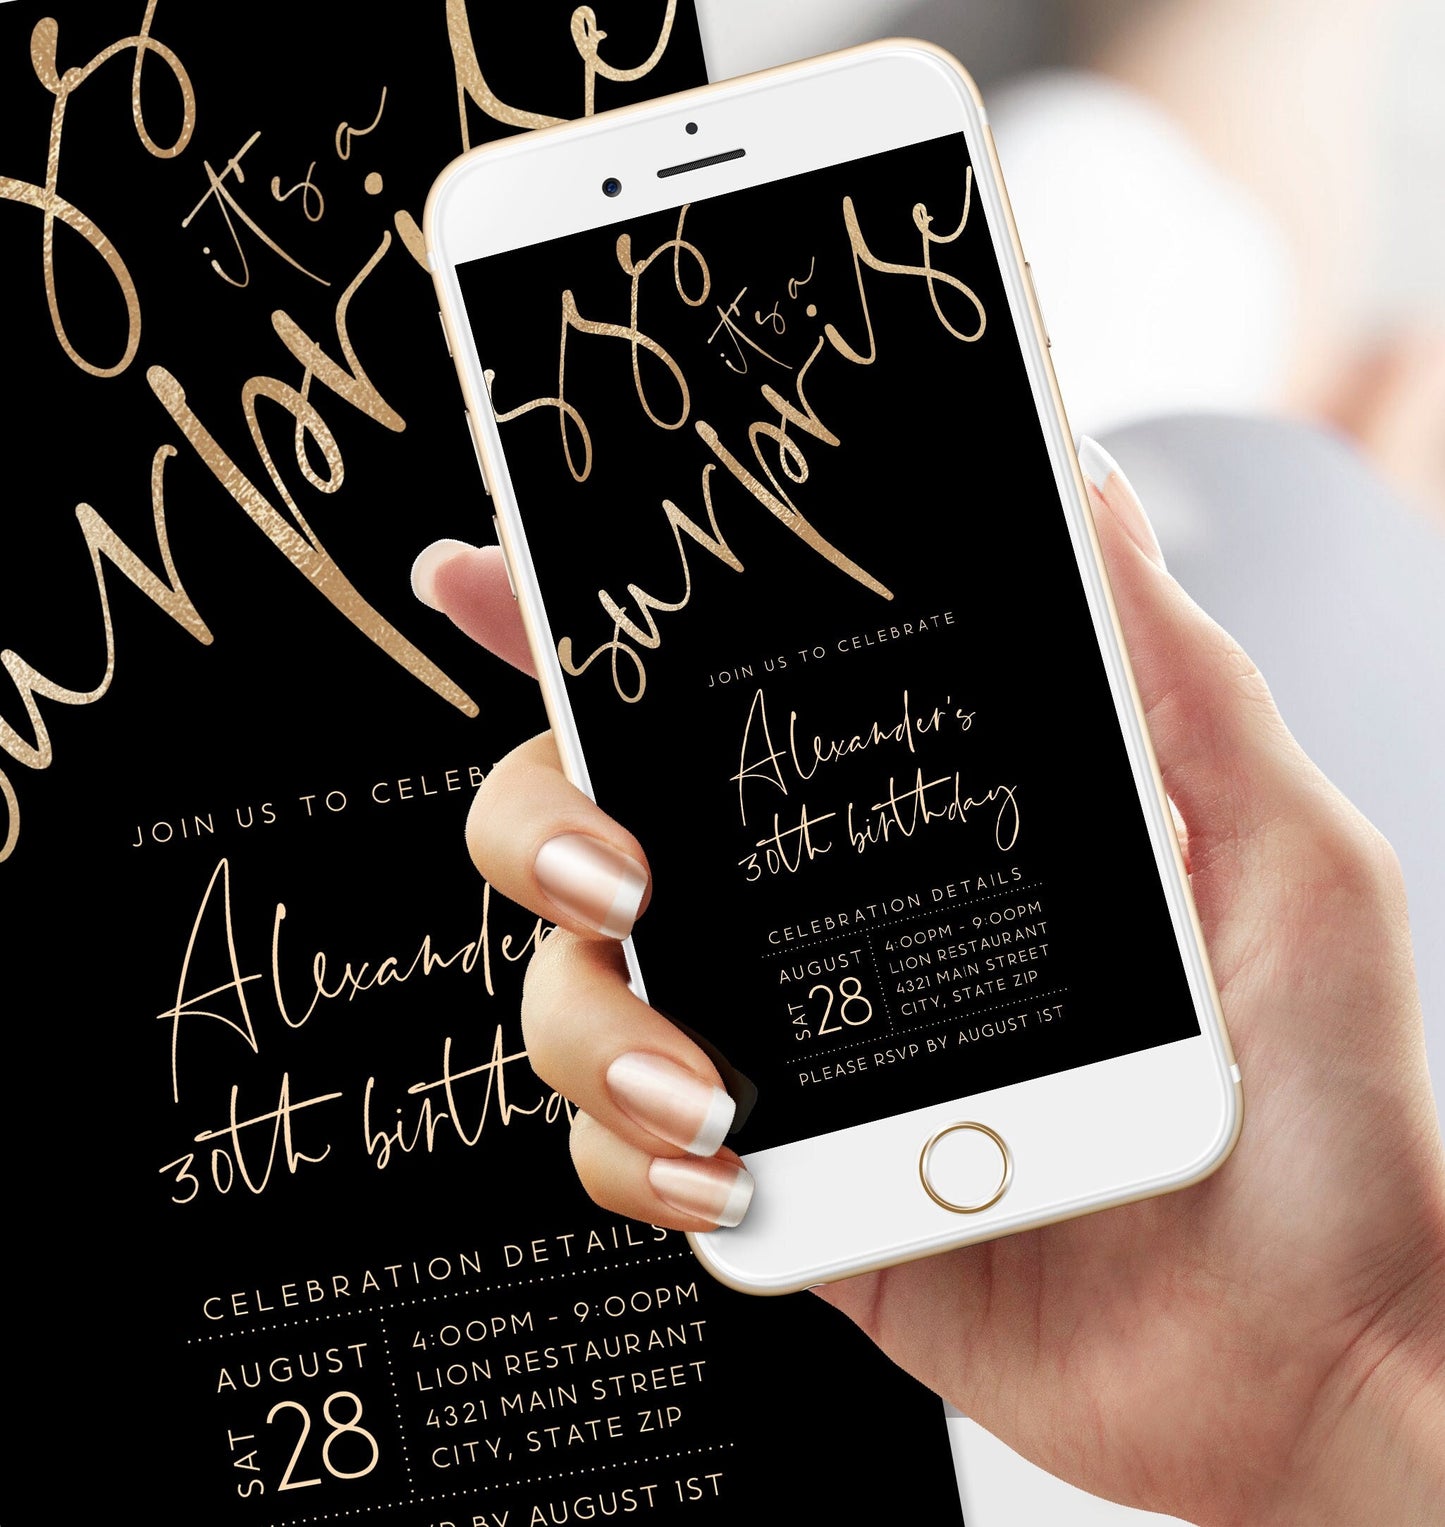 sss
it's a
surprise
JOIN US TO CELEB
Alexander
30th birthd
CELEBRATION DETAILS
AUGUST
SAT 28
4:00PM - 9:00PM
LION RESTAURANT
4321 MAIN STREET
CITY, STATE ZIP
BY AUGUST 1ST
sss
it's a
surprise
JOIN US TO CELEBRATE
Alexander's
30th birthday
CELEBRATION DETAILS
AUGUST
SAT 28
4:00PM - 9:00PM
LION RESTAURANT
4321 MAIN STREET
CITY, STATE ZIP
PLEASE RSVP BY AUGUST 1ST